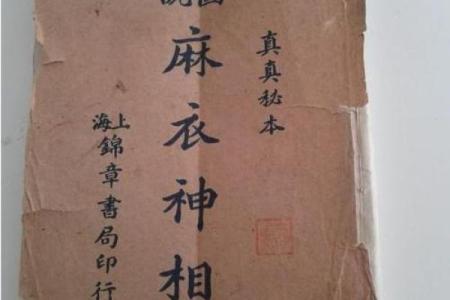 真真秘本
麻衣神相
上海
錦章書局印行